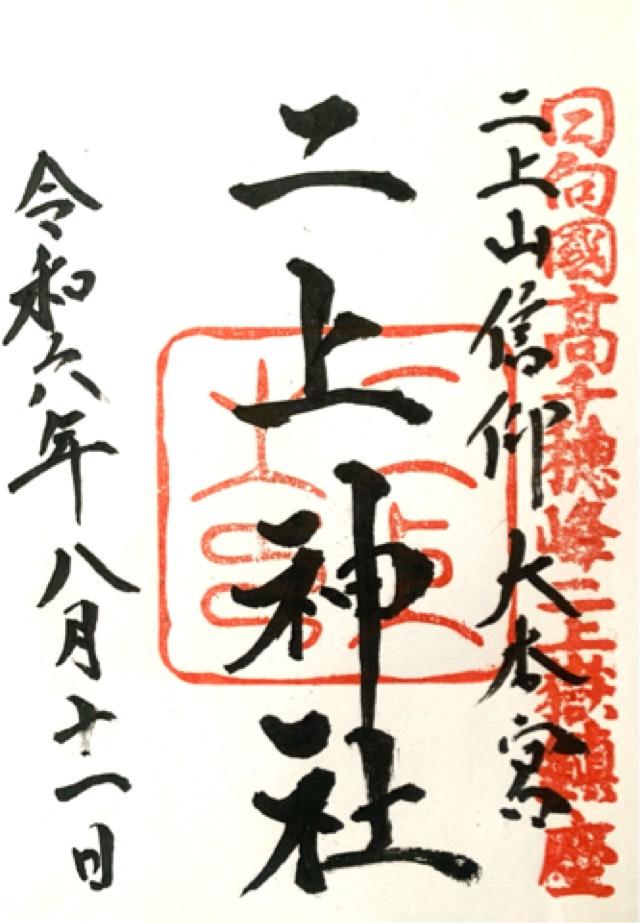 日向國高千穂峰二上嶽鎮座
二上山信仰大本宮
二上神社
令和六年八月十一日